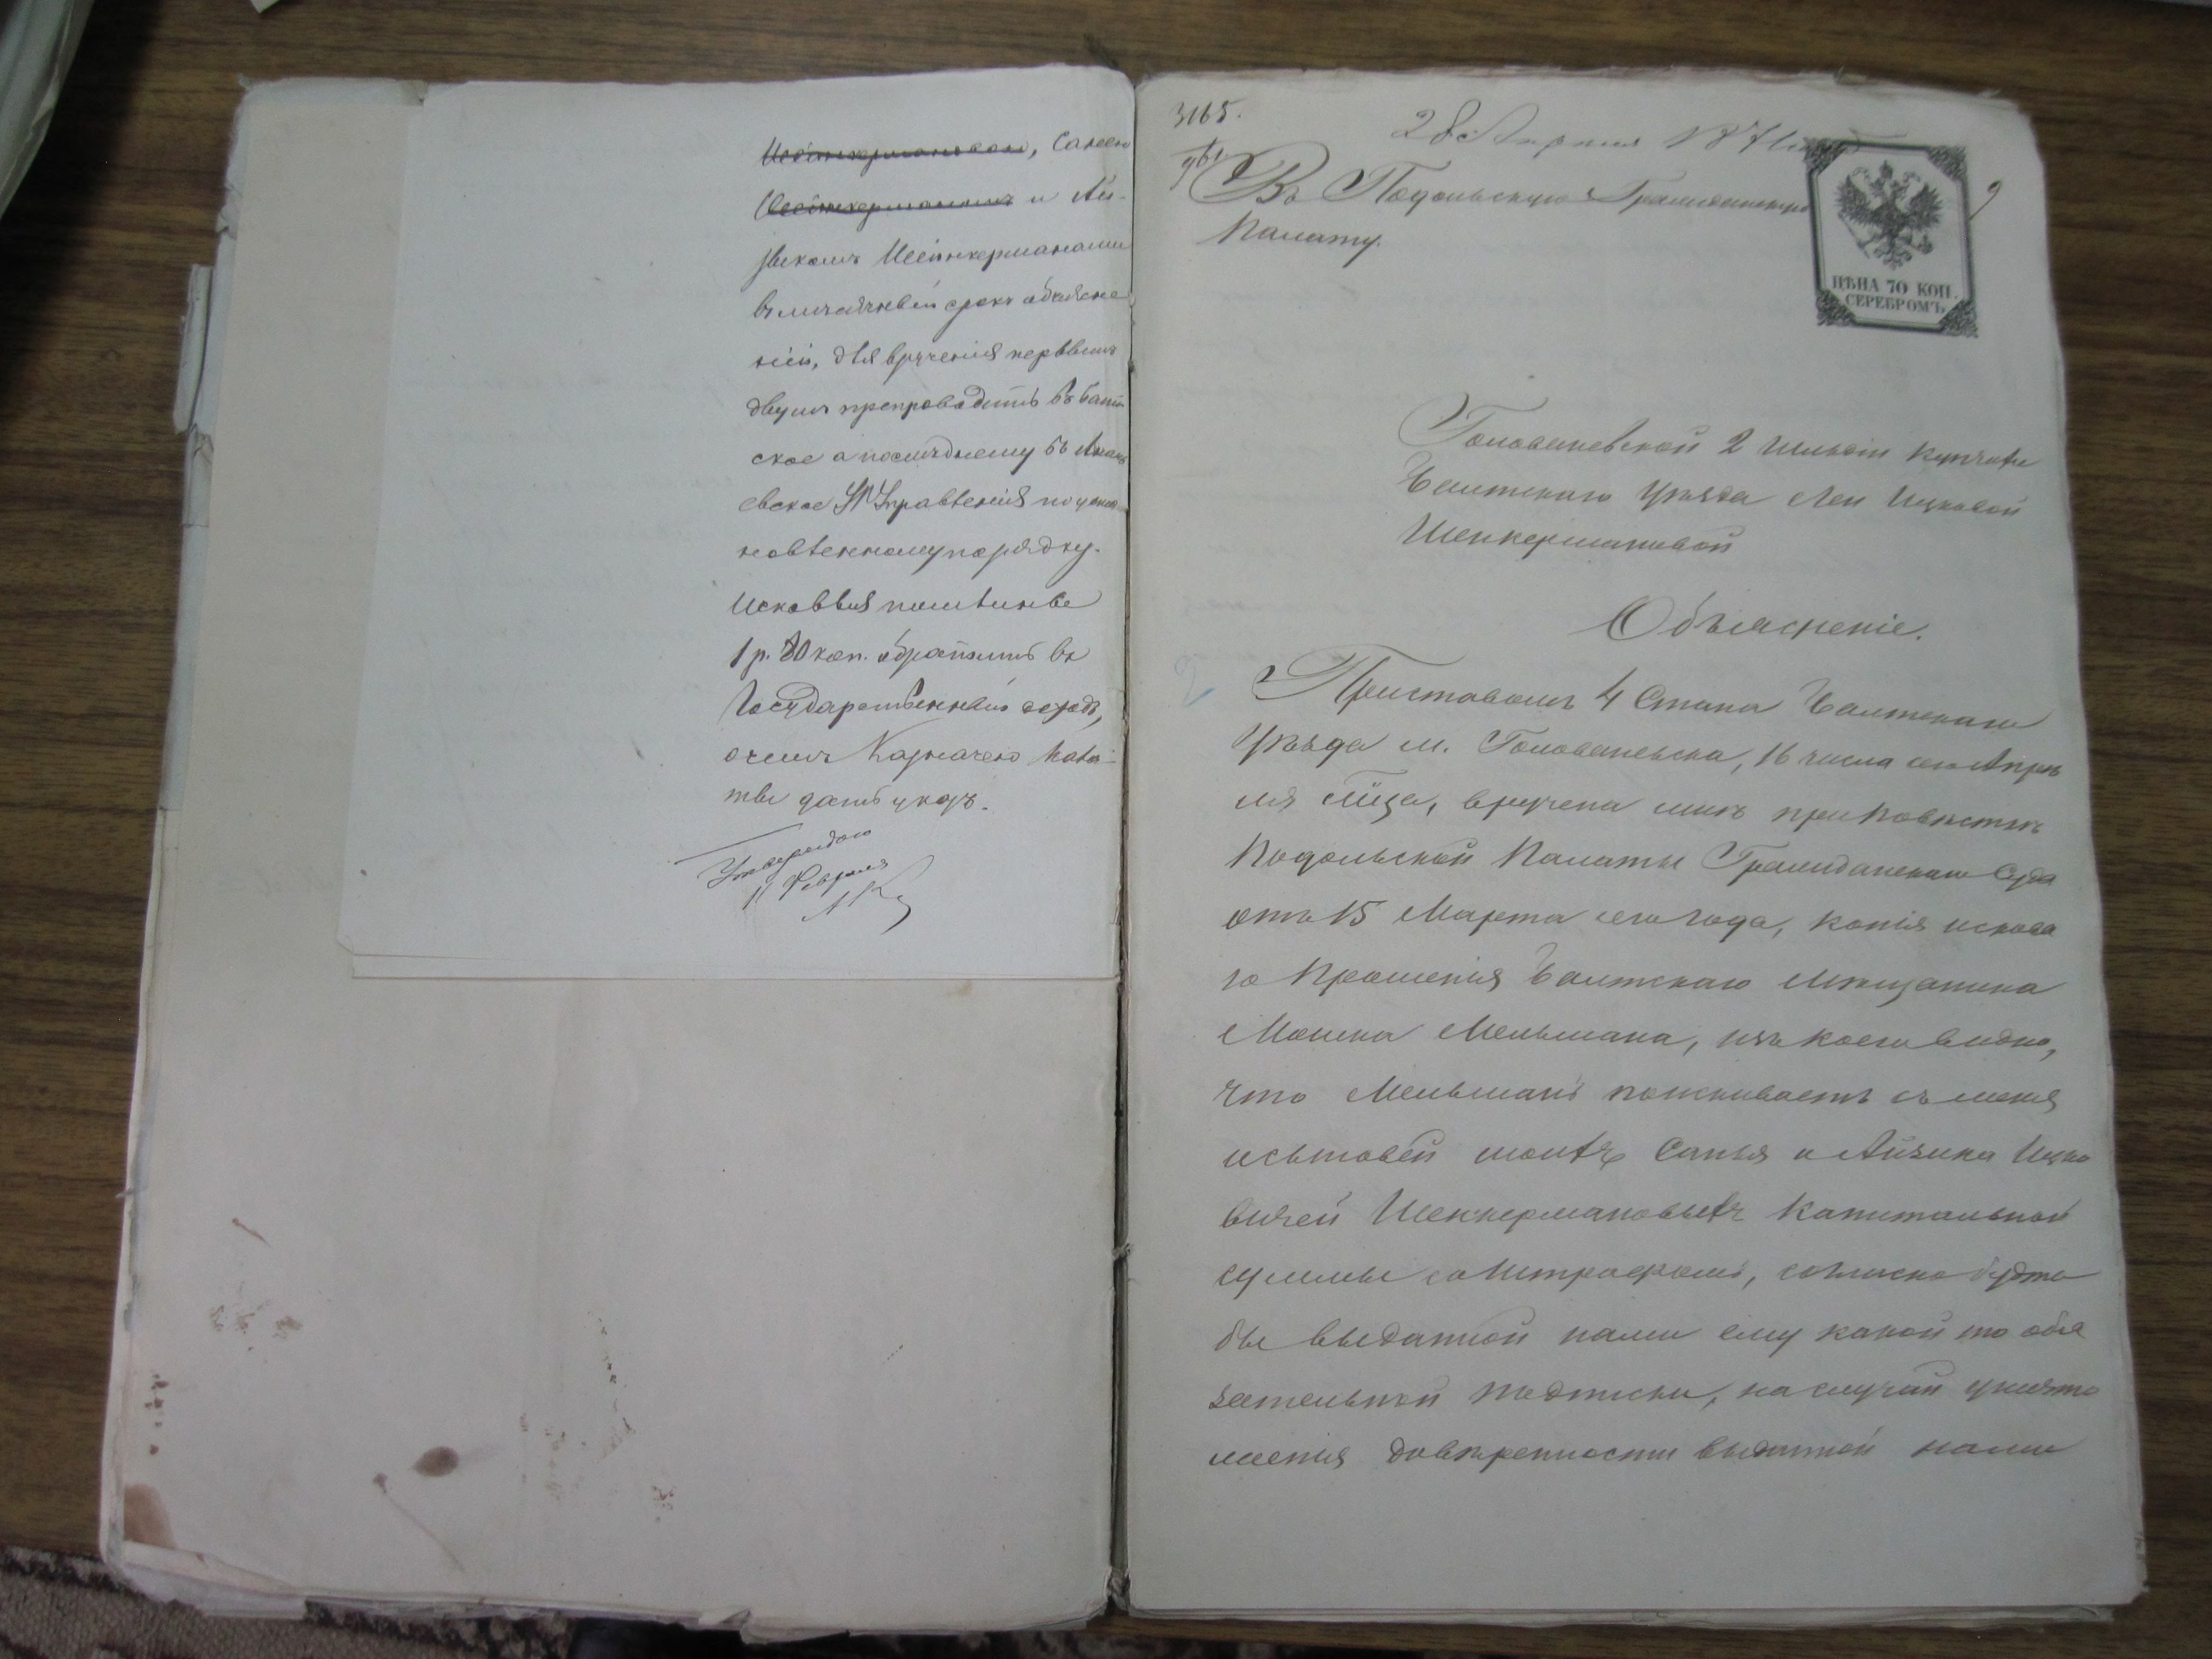 Шейнкермановою, Санею
Шейнкерманомъ и Ай-
зикомъ Шейнкерманами
въ мѣсячный срокъ объясне
ній, для врученія первымъ
двумъ препроводить въ Балт
ское а послѣднему въ Анань
евское П. Управленія по устан
новленному порядку.
Исковыя пошлины
1 р. 80 коп. обратить въ
Государственный доходъ,
о чемъ Казначею Пала-
ты дать указъ.
Утверждаю
11 Февраля
3165.
28 Апрѣля 1871
Въ Подольскую Гражданскую
Палату.
9
ЦѢНА 70 КОП.
СЕРЕБРОМЪ.
Голованевской 2 гильдіи купчихи
Балтскаго уѣзда Леи Ицковой
Шенкермановой
Объясненіе.
Приставомъ 4 Стана Балтскаго
Уѣзда м. Голованевска, 16 числа сего Апрѣ
ля м̃ца, вручена мнѣ при повѣсткѣ
Подольской Палаты Гражданскаго Суда
отъ 15 Марта сего года, копія исковa
го Прошенія Балтскаго Мѣщанина
Мошка Мельмана, изъ коего видно,
что Мельманъ поискиваетъ съ меня
и сытовей моихъ Санья и Айзика Ицко
вичей Шенкермановыхъ капитальной
суммы со штрафомъ, согласно будто
бы выданной нами ему какой то обя
зательной подписки, на случай уничто
женія довѣренности выданной нами